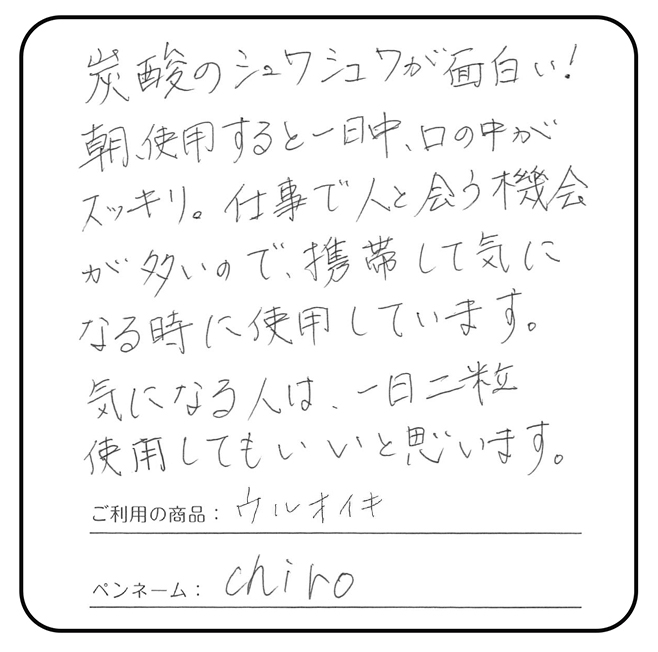 炭酸のシュワシュワが面白い!
朝、使用すると一日中、口の中が
スッキリ。仕事で人と会う機会
が多いので、携帯して気に
なる時に使用しています。
気になる人は、一日二粒
使用してもいいと思います。
ご利用の商品：ウルオイキ
ペンネーム：chiro